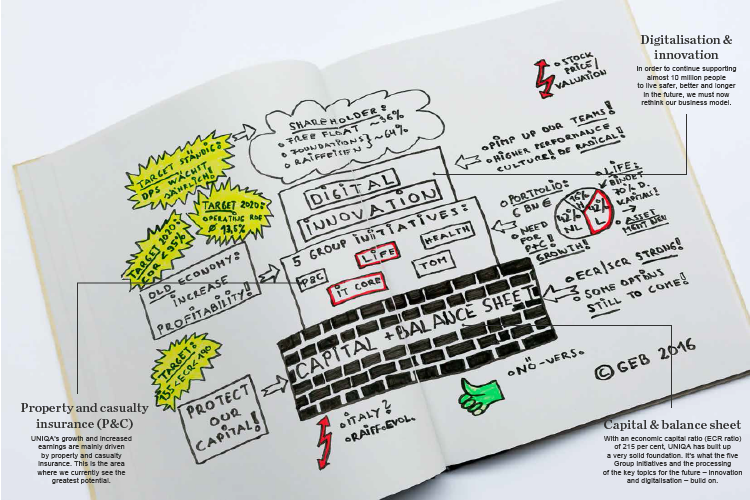 Digitalisation &
innovation
In order to continue supporting
almost 10 million people
to live safer, better and longer
in the future, we must now
rethink our business model.
STOCK
PRICE/
VALUATION
SHAREHOLDER:
FREE FLOAT ~36%
FOUNDATIONS
RAIFFEISEN } ~64%
TARGET STÄNDIG:
DPS WÄCHST
JÄHRLICH!
PIMP UP OUR TEAMS!
HIGHER PERFORMANCE
CULTURE! BE RADICAL!
DIGITAL
INNOVATION
TARGET 2020:
OPERATING ROE
Ø 13,5%
TARGET 2020:
COR < 95%
5 GROUP INITIATIVES:
P&C
LIFE
HEALTH
IT CORE
TOM
PORTFOLIO:
6 BN €
NEED
FOR
P&C!
GROWTH!
NL
L
LIFE:
BINDET
KAPITAL!
ASSET
OLD ECONOMY:
INCREASE
PROFITABILITY!
ECR/SCR STRONG!
SOME OPTIONS
STILL TO COME!
CAPITAL + BALANCE SHEET
TARGET:
155 < ECR < 190
PROTECT
OUR
CAPITAL!
NÖ-VERS.
© GEB 2016
ITALY?
RAIFF. EVOL.
Property and casualty
insurance (P&C)
UNIQA's growth and increased
earnings are mainly driven
by property and casualty
insurance. This is the area
where we currently see the
greatest potential.
Capital & balance sheet
With an economic capital ratio (ECR ratio)
of 215 per cent, UNIQA has built up
a very solid foundation. It's what the five
Group Initiatives and the processing
of the key topics for the future – innovation
and digitalisation – build on.